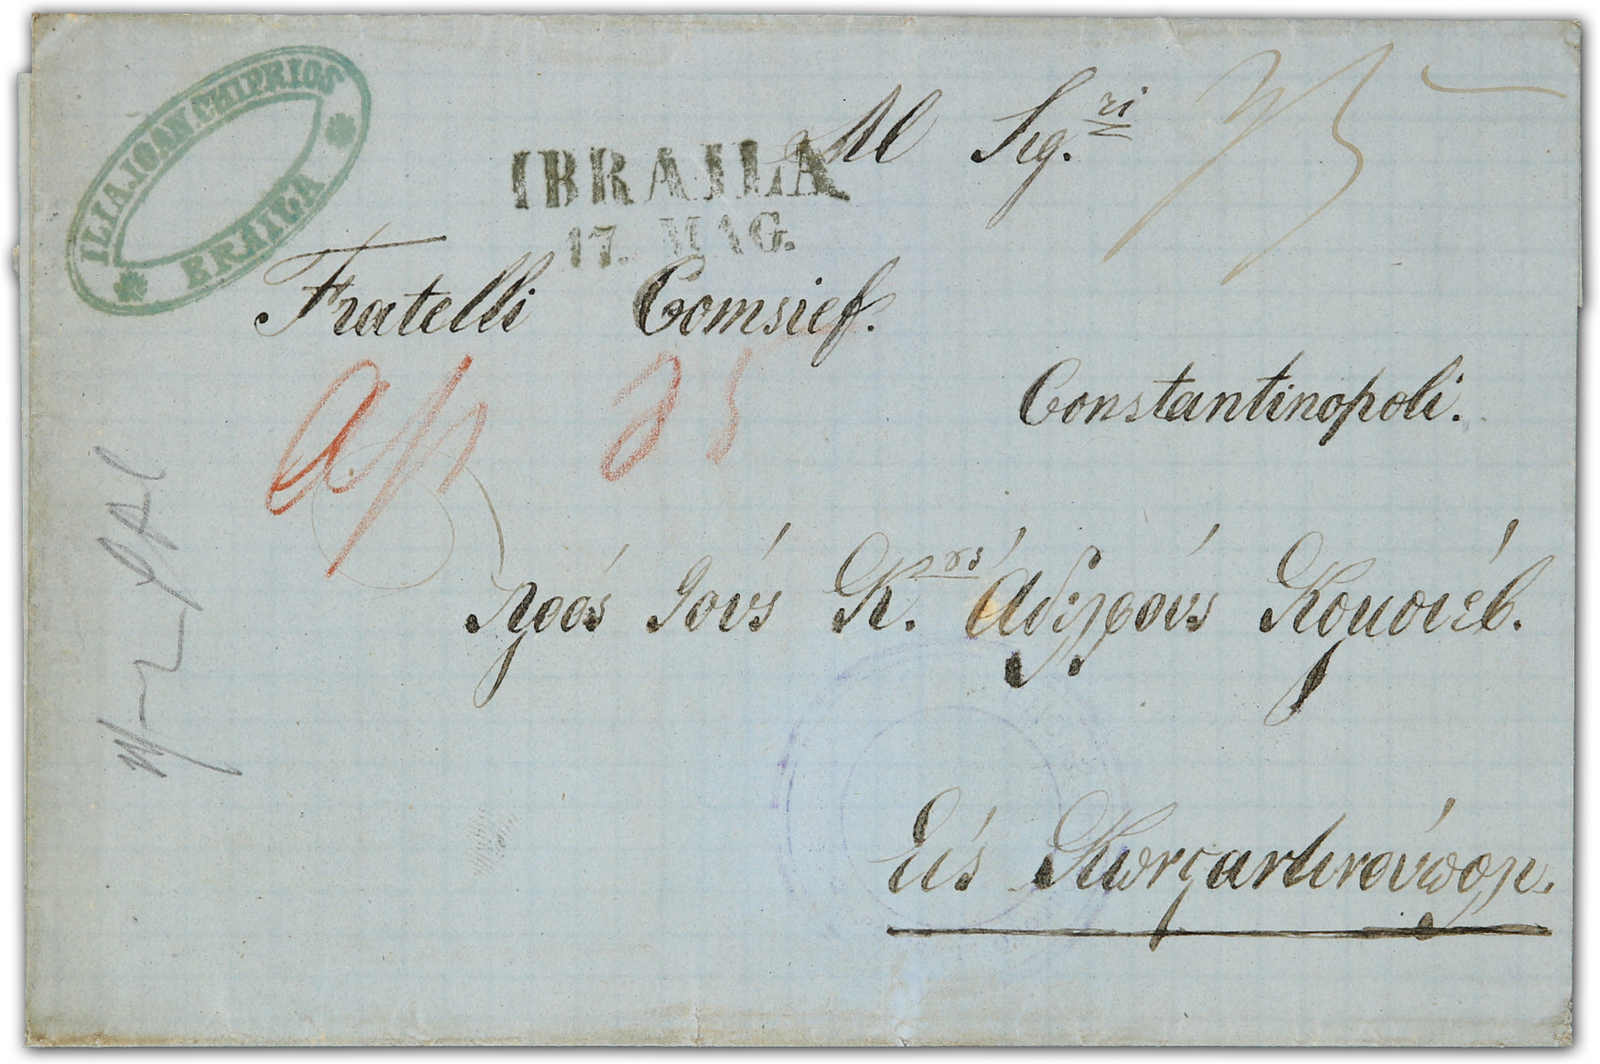 ILIA JOAN CHIPRIOS
BRAILA
IBRAILA
17. MAG.
Al Sig.ri
Fratelli Comsief.
Constantinopoli.
25
Πρός Τούς Κ.ρούς Ἀδελφούς Κομσιέβ.
Εἰς Κωνςαντινούπολι.